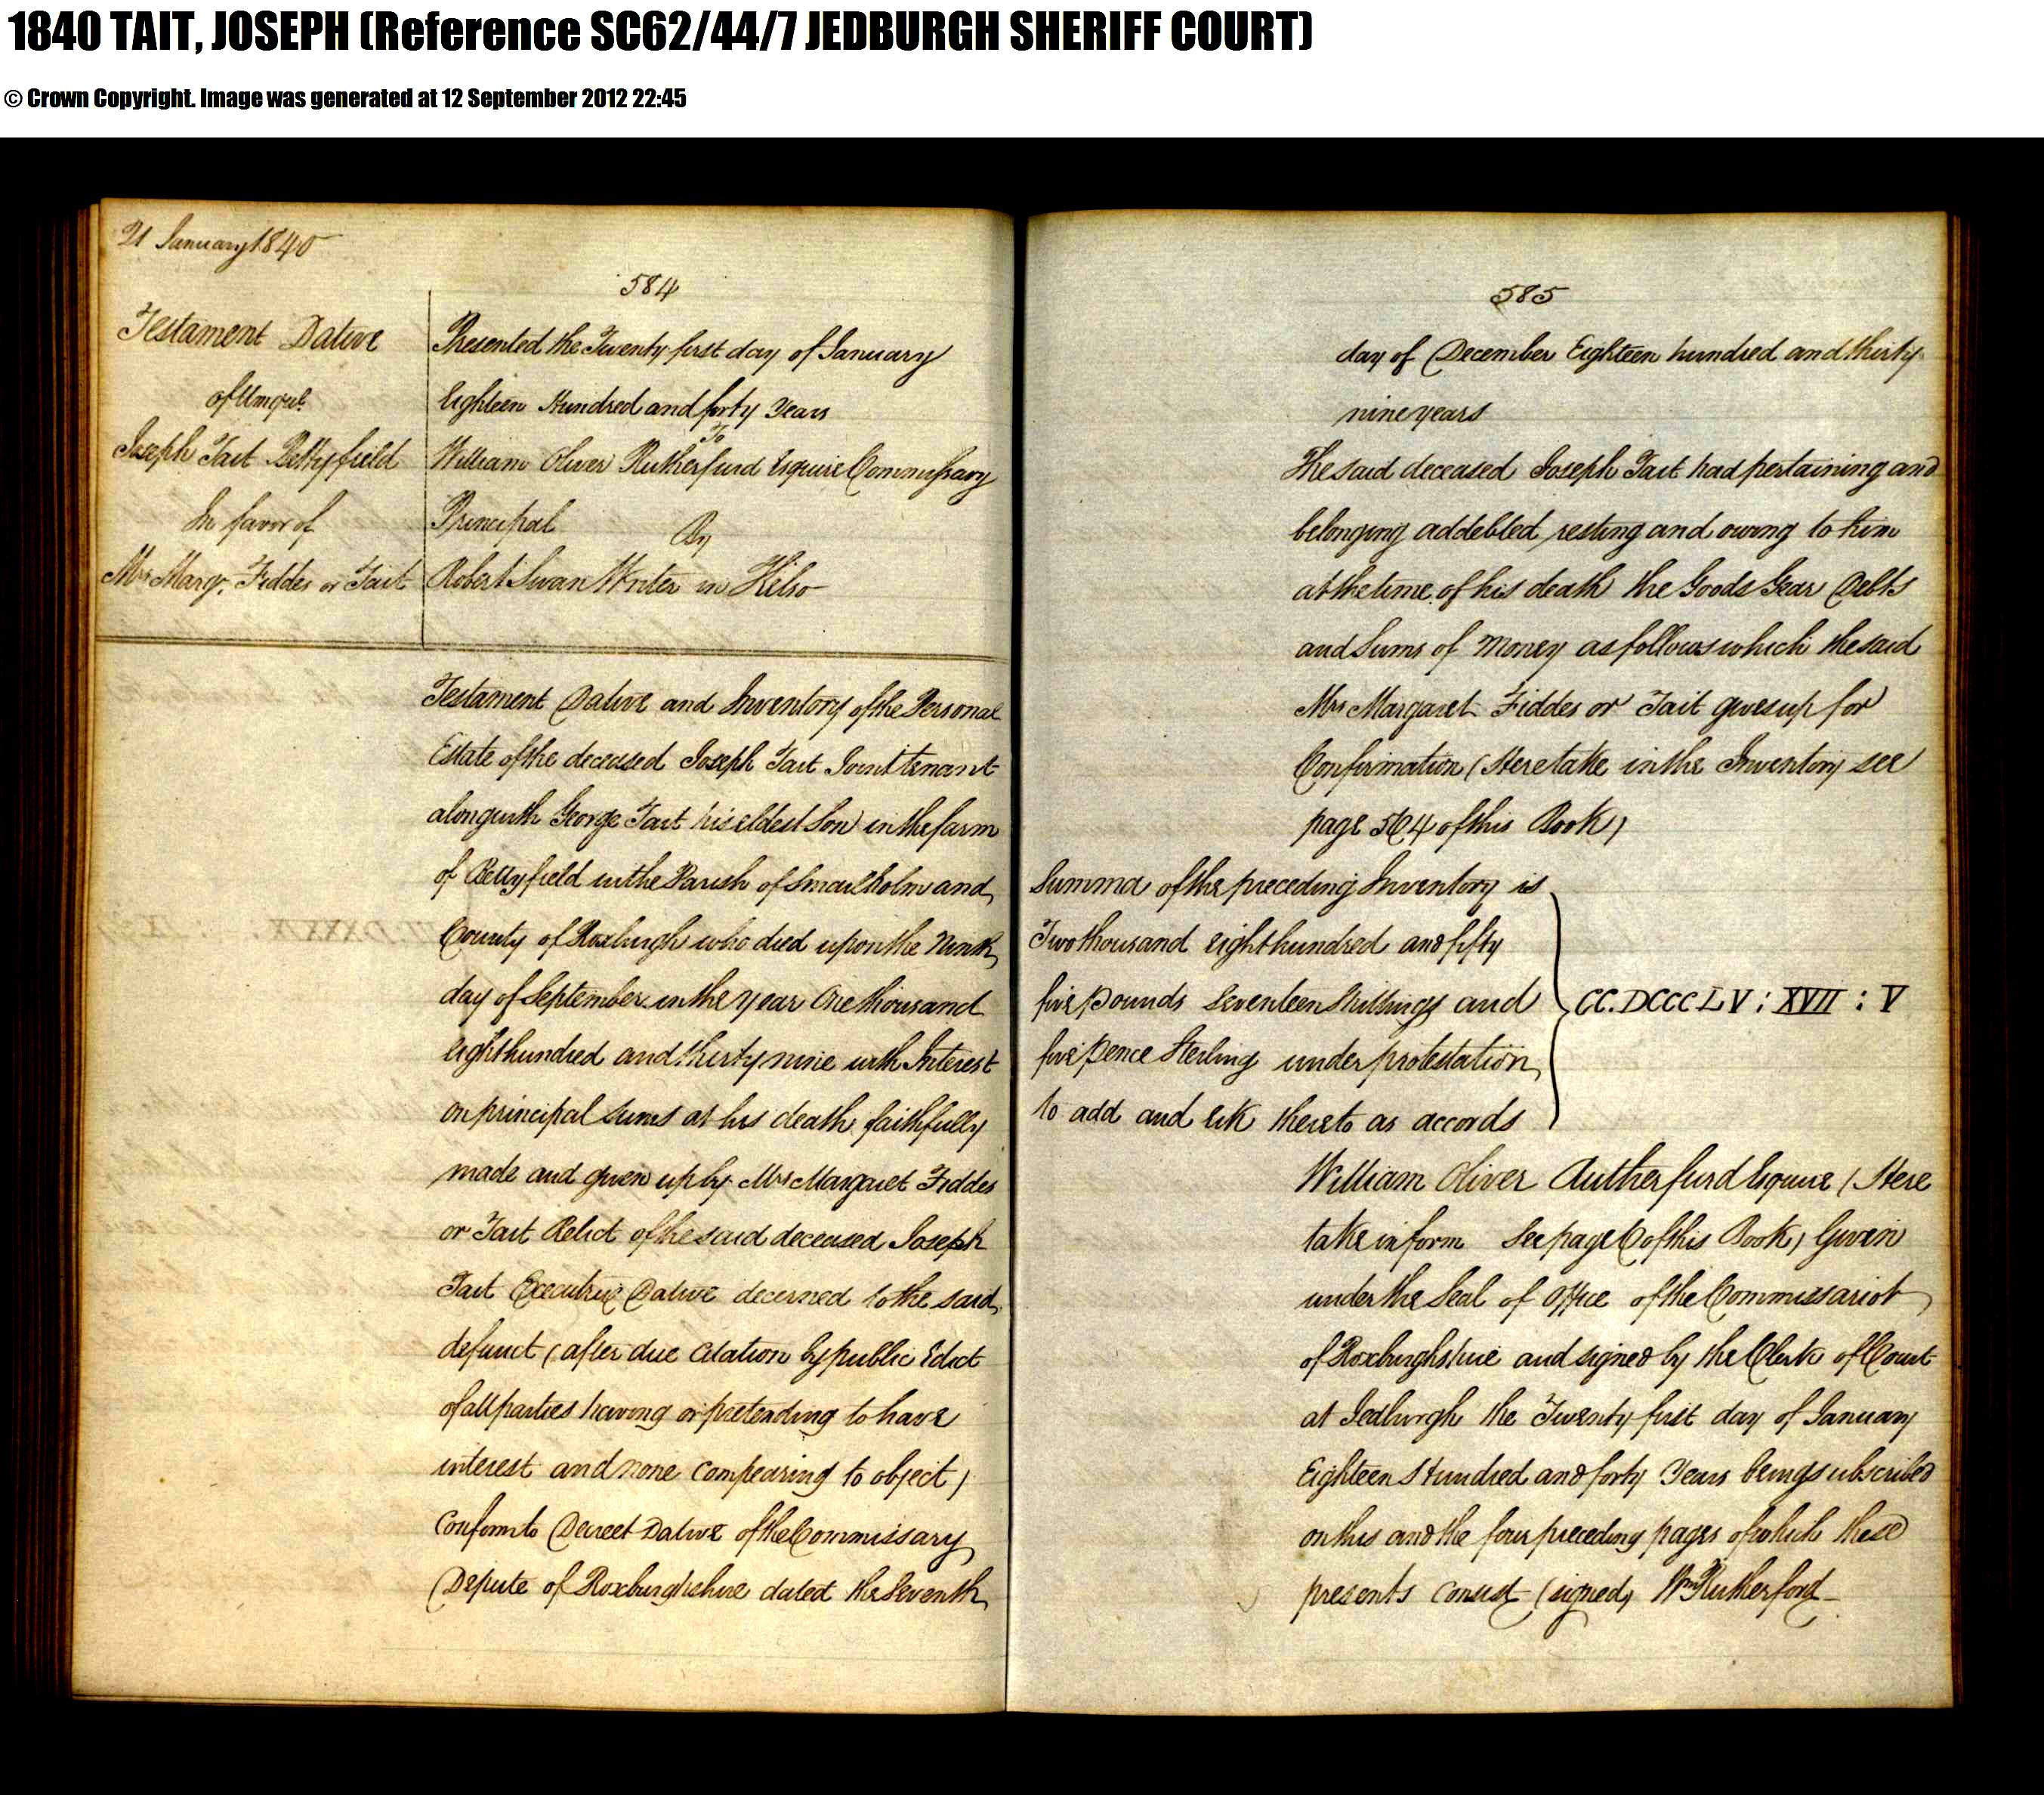 1840 TAIT, JOSEPH (Reference SC62/44/7 JEDBURGH SHERIFF COURT)
© Crown Copyright. Image was generated at 12 September 2012 22:45
21 January 1840
584
Testament Dative
of Umqule
Joseph Tait Bettyfield
In favor of
Mrs Marg. Fiddes or Tait
Presented the Twenty first day of January
Eighteen Hundred and forty Years
To
William Oliver Rutherfurd Esquire Commissary
Principal
By
Robert Swan Writer in Kelso
Testament Dative and Inventory of the Personal
Estate of the deceased Joseph Tait Joint tenant
along with George Tait his eldest Son in the farm
of Bettyfield in the Parish of Smailholm and
County of Roxburgh who died upon the Ninth
day of September in the year One thousand
eight hundred and thirty nine with Interest
on principal sums at his death faithfully
made and given up by Mrs Margaret Fiddes
or Tait Relict of the said deceased Joseph
Tait Executrix Dative decerned to the said
defunct (after due citation by public Edict
of all parties having or pretending to have
interest and none compearing to object)
conform to Decreet Dative of the Commissary
Depute of Roxburghshire dated the Seventh
585
day of December Eighteen hundred and thirty
nine years
The said deceased Joseph Tait had pertaining and
belonging addebted resting and owing to him
at the time of his death the Goods Gear Debts
and Sums of Money as follows which the said
Mrs Margaret Fiddes or Tait gives up for
Confirmation (Here take in the Inventory see
page 564 of this Book)
Summa of the preceding Inventory is
Two thousand eight hundred and fifty
five pounds Seventeen Shillings and
five pence Sterling under protestation
to add and eik thereto as accords
CC.DCCCLV : XVII : V
William Oliver Rutherfurd Esquire (Here
take in form See page 6 of this Book) Given
under the Seal of Office of the Commissariot
of Roxburghshire and signed by the Clerk of Court
at Jedburgh the Twenty first day of January
Eighteen Hundred and forty Years being subscribed
on this and the four preceding pages of which these
presents consist (signed) Wm Rutherford